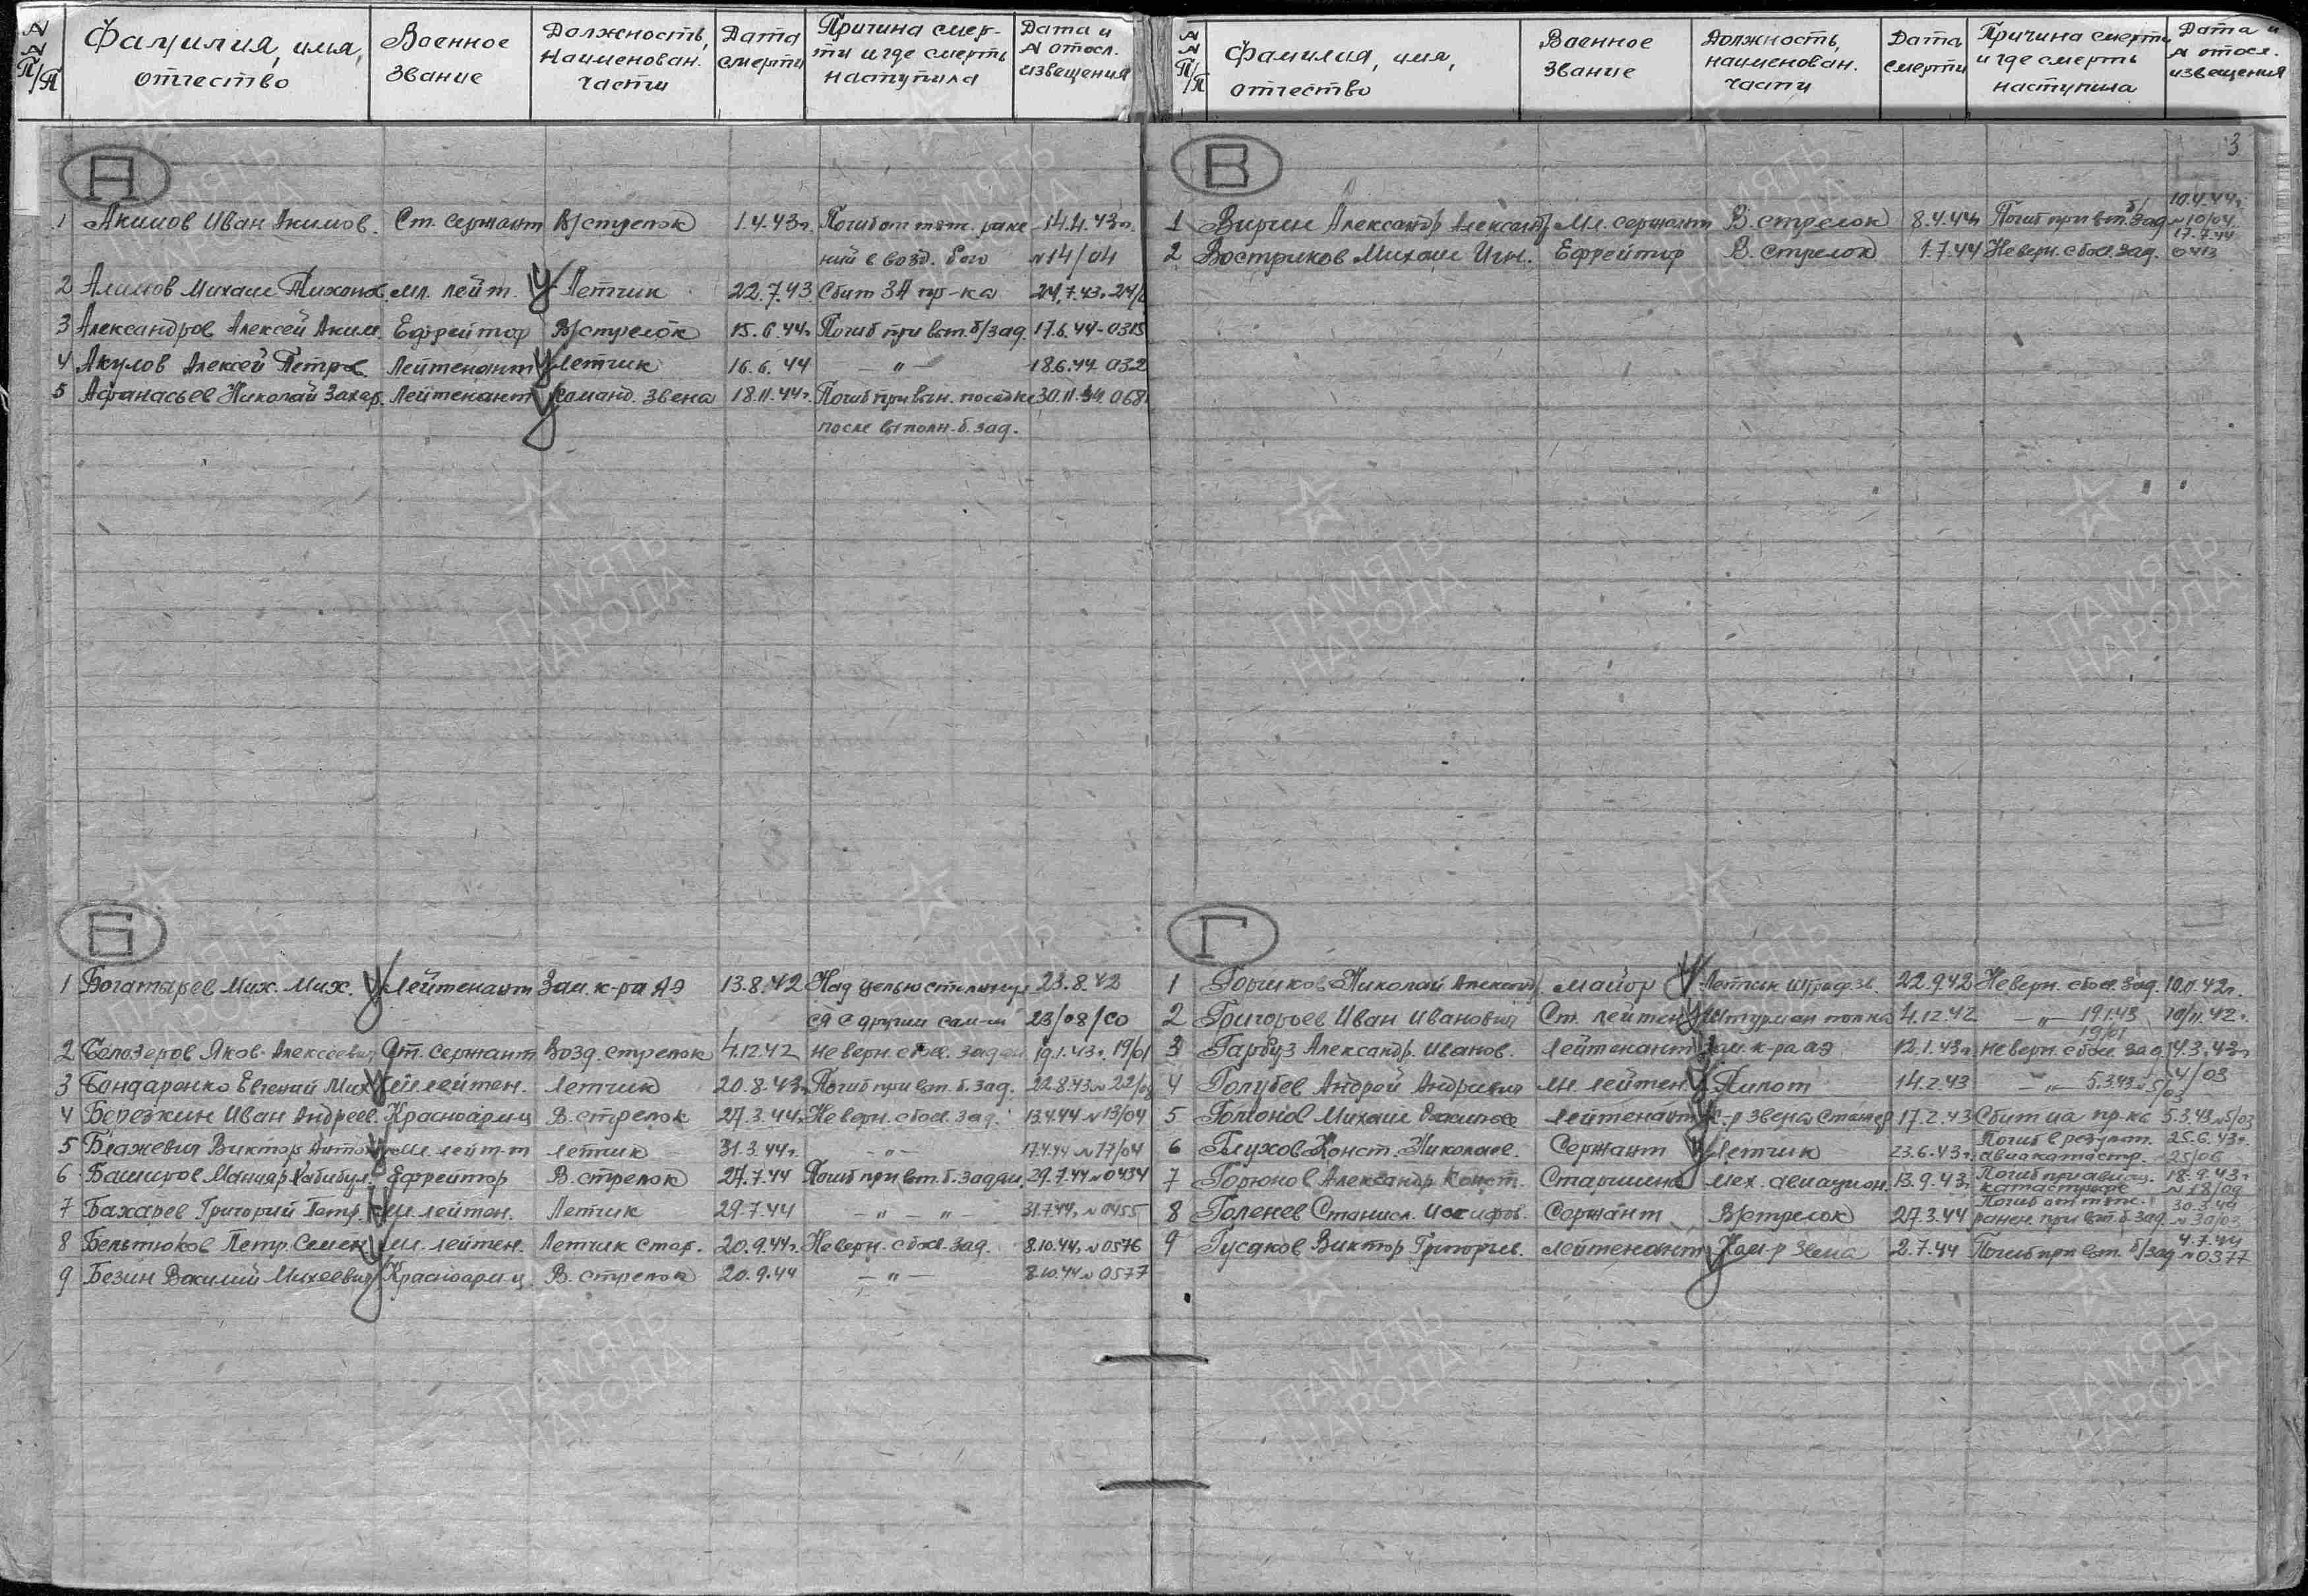 №№ п/п
Фамилия, имя, отчество
Военное звание
Должность, наименован. части
Дата смерти
Причина смерти и где смерть наступила
Дата и № отосл. извещения
А
1 Акимов Иван Акимов. Ст. сержант В/стрелок 1.4.43г. Погиб от тяж. ране- 14.4.43г.
ний в возд. бою №14/04
2 Алимов Михаил Тихонов. мл. лейт. Летчик 22.7.43 Сбит ЗА пр-ка 24.7.43г. 24/
3 Александров Алексей Аким. Ефрейтор В/стрелок 15.6.44г. Погиб при вып. б/зад. 17.6.44-0315
4 Акулов Алексей Петров Лейтенант Летчик 16.6.44 —"— 18.6.44 032
5 Афанасьев Николай Захар. Лейтенант Команд. звена 18.11.44г. Погиб при вын. посадке 30.11.44. 068
после выполн. б. зад.
Б
1 Богатырев Мих. Мих. Лейтенант Зам. к-ра АЭ 13.8.42 Над целью столкнул 23.8.42
ся с другим сам-м 23/08/СО
2 Белозеров Яков Алексеевич Ст. сержант Возд. стрелок 4.12.42 Не верн. с боев. задан 19.1.43г. 19/01
3 Бондаренко Евгений Мих мл лейтен. Летчик 20.8.43г. Погиб при вып. б. зад. 22.8.43г. № 22/08
4 Березкин Иван Андреев. Красноарм-ц В. стрелок 27.3.44г. Не верн. с боев. зад. 13.4.44 № 13/04
5 Блажевич Виктор Антон мл. лейт-т летчик 31.3.44г. —"— 17.4.44 № 17/04
6 Баширов Манцяр Хабибул. Ефрейтор В. стрелок 27.7.44 Погиб при вып. б. задан. 29.7.44 № 0434
7 Бахарев Григорий Петр. мл лейтен. Летчик 29.7.44 —"— "— 31.7.44г. № 0455
8 Бельтюков Петр Семен мл. лейтен. Летчик стар. 20.9.44г. Не верн. с боев. зад. 8.10.44г. № 0576
9 Безин Василий Михеевич Красноарм-ц В. стрелок 20.9.44 —"— 8.10.44 № 0577
№№ п/п
Фамилия, имя, отчество
Военное звание
Должность, наименован. части
Дата смерти
Причина смерти и где смерть наступила
Дата и № отосл. извещения
3
В
1 Вирин Александр Александр. Мл. сержант В. стрелок 8.4.44г. Погиб при вып. б/зад 10.4.44г. №10/04
2 Востриков Михаил Игн. Ефрейтор В. стрелок 1.7.44 Не верн. с боев. зад. 17.7.44 0413
Г
1 Горшков Николай Александр майор Летчик штраф. зв. 22.9.42 Не верн. с боев. зад. 10.11.42г.
2 Григорьев Иван Иванович Ст. лейтен. Штурман полка 4.12.42 —"— 19.1.43 19/01 10/11.42г.
3 Гарбуз Александр Иванов. Лейтенант Зам. к-ра аэ 12.1.43г. не верн. с боев. зад 14.3.43г.
4 Голубев Андрей Андреевич мл. лейтен. Пилот 14.2.43 —"— 5.3.43 № 5/03 4/03
5 Голионов Михаил Васильев лейтенант К-р звена старш 17.2.43 Сбит ИА пр-ка 5.3.43 № 5/03
6 Глухов Конст. Николаев. Сержант Летчик 23.6.43г. Погиб в результ. авиакатастр. 25.6.43г. №25/06
7 Горюнов Александр Конст. Старшина мех. авиацион. 13.9.43г. Погиб при авиац. катастрофе 18.9.43г. № 18/09
8 Голенев Станисл. Иосифов. Сержант В/стрелок 27.3.44 Погиб от тяж. ранен. при вып. б. зад. 30.3.44 № 30/03
9 Гусаков Виктор Григорьев. лейтенант Ком-р звена 2.7.44 Погиб при вып. б/зад 4.7.44 № 0377
ПАМЯТЬ НАРОДА